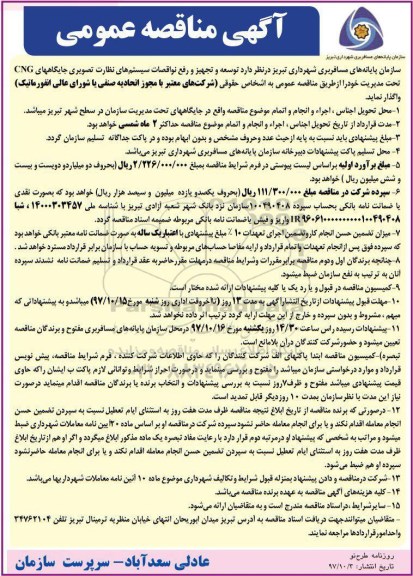 آگهی مناقصه عمومی
سازمان پایانه‌های مسافربری شهرداری تبریز
سازمان پایانه‌های مسافربری شهرداری تبریز درنظر دارد توسعه و تجهیز و رفع نواقصات سیستم‌های نظارت تصویری جایگاههای CNG
تحت مدیریت خودرا ازطریق مناقصه عمومی به اشخاص حقوقی (شرکت‌های معتبر با مجوز اتحادیه صنفی یا شورای عالی انفورماتیک)
واگذار نماید.
۱-محل تحویل اجناس ، اجراء و انجام و اتمام موضوع مناقصه واقع در جایگاههای تحت مدیریت سازمان در سطح شهر تبریز میباشد.
۲-مدت قرارداد از تاریخ تحویل اجناس ، اجراء و انجام و اتمام موضوع مناقصه حداکثر ۲ ماه شمسی خواهد بود.
۳-مبلغ پیشنهادی باید نسبت به پایه ازحیث عدد وحروف مشخص و بدون ابهام بوده و در پاکت جداگانه تسلیم سازمان گردد.
۴- محل تسلیم پاکت پیشنهادات دبیرخانه سازمان پایانه‌های مسافربری شهرداری تبریز می‌باشد.
۵- مبلغ برآورد اولیه براساس لیست پیوستی در فرم شرایط مناقصه بمبلغ ۲/۲۲۶/۰۰۰/۰۰۰ ریال (بحروف دو میلیاردو دویست و بیست
و شش میلیون ریال ) خواهد بود.
۶- سپرده شرکت در مناقصه مبلغ ۱۱۱/۳۰۰/۰۰۰ ریال( بحروف یکصدو یازده میلیون و سیصد هزار ریال) خواهد بود که بصورت نقدی
یا ضمانت نامه بانکی بحساب سپرده ۱۰۰۴۹۰۴۰۸ سازمان نزد بانک شهر شعبه آزادی تبریز با شناسه ملی ۱۴۰۰۰۳۰۳۴۵۷ ، شبا
واریز و فیش یاضمانت نامه بانکی مربوطه ضمیمه اسناد مناقصه گردد.
۷- میزان تضمین حسن انجام کاروتضمین اجرای تعهدات ۱۰٪ مبلغ پیشنهادی با اعتبار یک ساله به صورت ضمانت نامه معتبر بانکی خواهد بود
که سپرده فوق پس ازانجام تعهدات و اتمام قرارداد و ارایه مفاصا حساب‌های مربوطه و تسویه حساب با سازمان برابر قرارداد مسترد خواهد شد .
۸-چنانچه برندگان اول ودوم مناقصه برابرمقررات وشرایط مناقصه درمهلت مقررحاضربه عقد قرارداد و تسلیم ضمانت نامه نشدند سپرده
آنان به ترتیب به نفع سازمان ضبط میشود.
۹-کمیسیون مناقصه در قبول و یا رد یک یا کلیه پیشنهادات ارائه شده مختار است.
۱۰-مهلت قبول پیشنهادات ازتاریخ انتشارآگهی به مدت ۱۳ روز (تاخروقت اداری روز شنبه مورخ ۹۷/۱۰/۱۵) میباشدو به پیشنهاداتی که
مبهم ، مشروط و بدون سپرده و خارج از این مهلت ارایه گردد ترتیب اثر داده نخواهد شد.
۱۱-پیشنهادات رسیده راس ساعت ۱۴/۳۰ روز یکشنبه مورخ ۹۷/۱۰/۱۶ درمحل سازمان پایانه‌های مسافربری مفتوح و برندگان مناقصه
تعیین میشود وحضورشرکت کنندگان درآن بلامانع است.
تبصره)-کمیسیون مناقصه ابتدا پاکتهای الف شرکت کنندگان را که حاوی اطلاعات شرکت کننده ، فرم شرایط مناقصه، پیش نویس
قرارداد و موارد درخواستی سازمان میباشد را مفتوح و بررسی مینماید و درصورت احراز شرایط وتوانائی لازم پاکت ب ایشان راکه حاوی
قیمت پیشنهادی میباشد مفتوح و ظرف۷روز نسبت به بررسی پیشنهادات و انتخاب برنده یا برندگان مناقصه اقدام مینماید درصورت
نیاز این مدت با نظرسازمان بمدت ۱۰ روزدیگر قابل تمدید است.
۱۲-درصورتی که برنده مناقصه از تاریخ ابلاغ نتیجه مناقصه ظرف مدت هفت روز به استثنای ایام تعطیل نسبت به سپردن تضمین حسن
انجام معامله اقدام نکند و یا برای انجام معامله حاضر نشود سپرده شرکت در مناقصه او بر اساس ماده ۲۰آیین نامه معاملات شهرداری ضبط
میشود و مراتب به شخصی که پیشنهاد او درمرتبه دوم قرار دارد با رعایت مفاد تبصره یک ماده مذکور ابلاغ میگردد و اگر او هم ازتاریخ ابلاغ
ظرف مدت هفت روز به استثنای ایام تعطیل نسبت به سپردن تضمین حسن انجام معامله اقدام نکند و یا برای انجام معامله حاضرنشود
سپرده او هم ضبط می‌شود.
۱۳-شرکت درمناقصه و دادن پیشنهاد بمنزله قبول شرایط وتکالیف شهرداری موضوع ماده ۱۰ آئین نامه معاملات شهرداریها می‌باشد.
۱۴-کلیه هزینه‌های آگهی مناقصه به عهده برنده مناقصه می‌باشد.
۱۵-سایرشرایط ،دراسناد مناقصه مندرج است و به متقاضیان ارائه می‌شود.
- متقاضیان میتوانندجهت دریافت اسناد مناقصه به آدرس تبریز میدان ابوریحان انتهای خیابان منظریه ترمینال تبریز تلفن ۳۴۷۶۲۱۰۴
واحدامورقراردادها مراجعه نمایند.
روزنامه طرح‌نو
تاریخ انتشار: ۹۷/۱۰/۳
عادلی سعدآباد- سرپرست سازمان